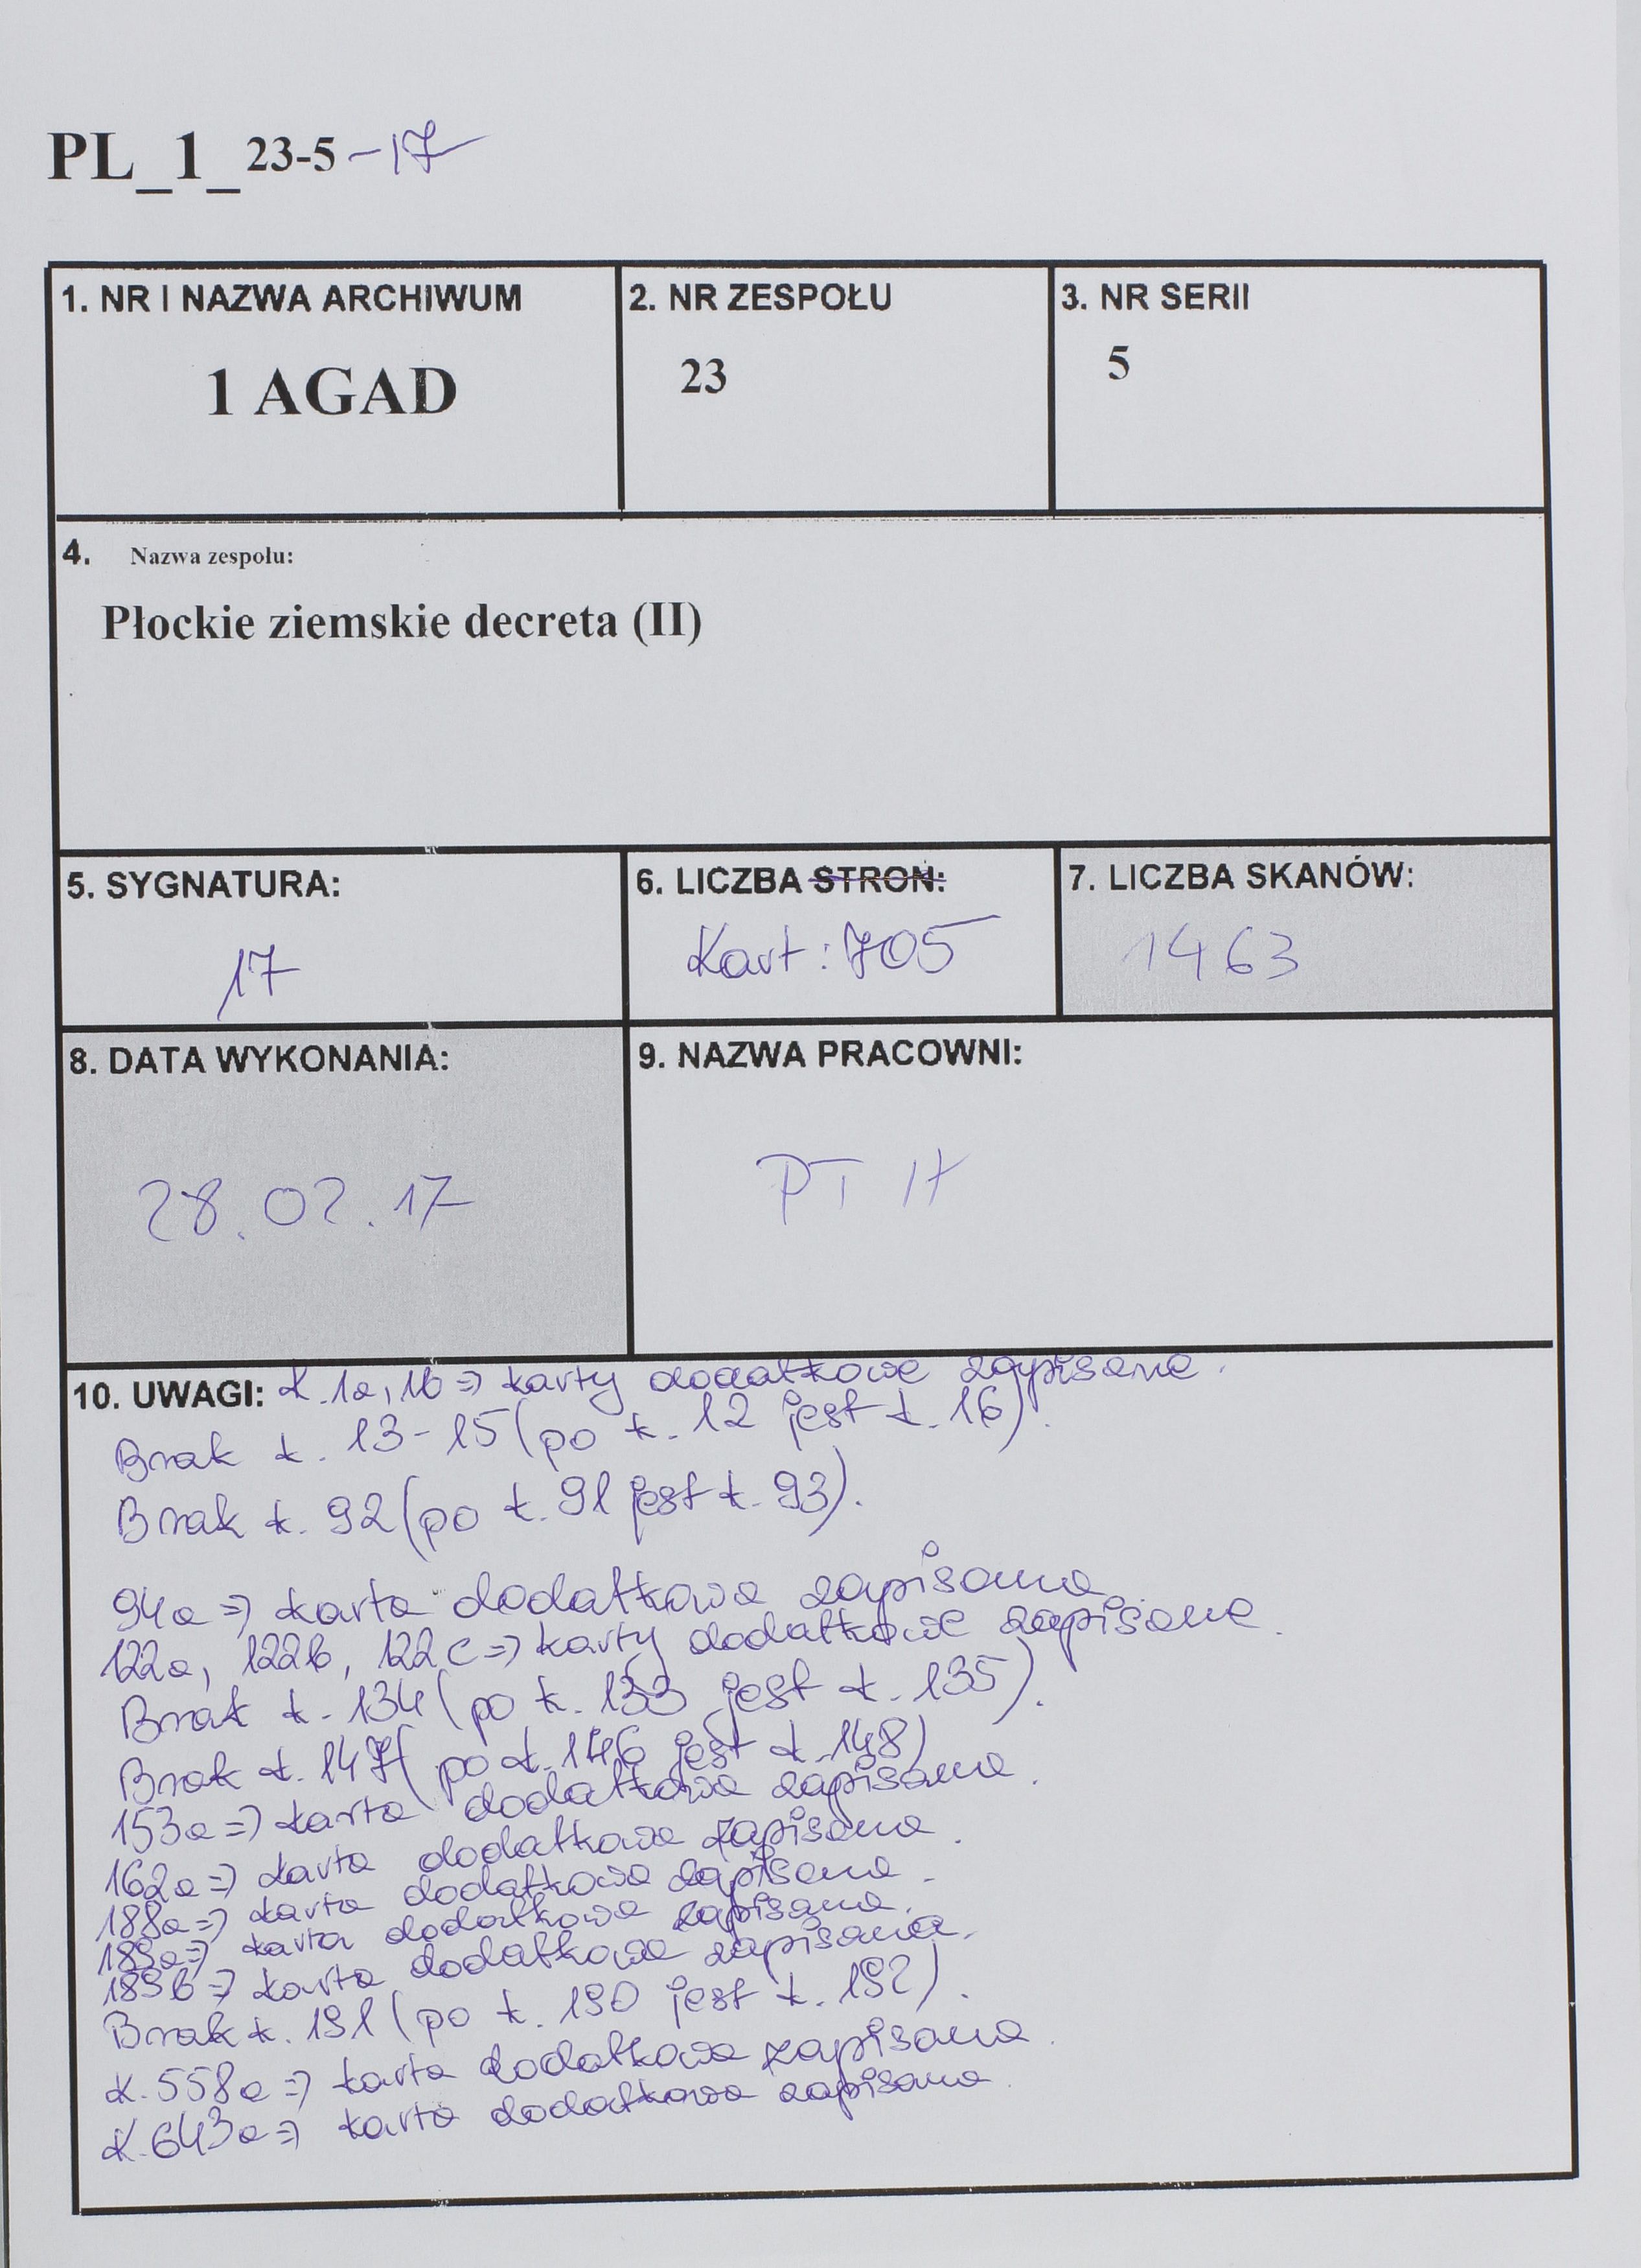 PL_1_23-5-17
1. NR I NAZWA ARCHIWUM
1 AGAD
2. NR ZESPOŁU
23
3. NR SERII
5
4. Nazwa zespołu:
Płockie ziemskie decreta (II)
5. SYGNATURA:
17
6. LICZBA STRON:
Kart: 705
7. LICZBA SKANÓW:
1463
8. DATA WYKONANIA:
28.02.17
9. NAZWA PRACOWNI:
PT
10. UWAGI: K. 1a, 1b => karty dodatkowe zapisane.
Brak k. 13-15 (po k. 12 jest k. 16).
Brak k. 92 (po k. 91 jest k. 93).
94a => karta dodatkowa zapisana.
122a, 122b, 122c => karty dodatkowe zapisane.
Brak k. 134 (po k. 133 jest k. 135).
Brak k. 147 (po k. 146 jest k. 148)
153a => karta dodatkowa zapisana.
162a => karta dodatkowa zapisana.
188a => karta dodatkowa zapisana.
189a => karta dodatkowa zapisana.
189b => karta dodatkowa zapisana.
Brak k. 191 (po k. 190 jest k. 192).
K. 558a => karta dodatkowa zapisana.
K. 643a => karta dodatkowa zapisana.